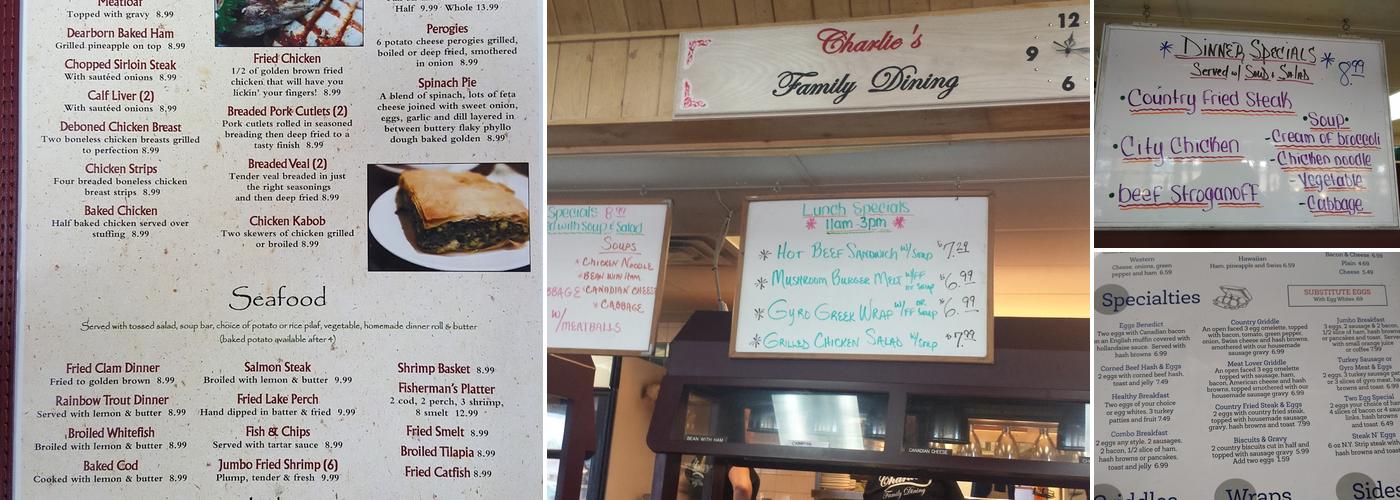 Meatloaf
Topped with gravy 8.99
Dearborn Baked Ham
Grilled pineapple on top 8.99
Chopped Sirloin Steak
With sautéed onions 8.99
Calf Liver (2)
With sautéed onions 8.99
Deboned Chicken Breast
Two boneless chicken breasts grilled
to perfection 8.99
Chicken Strips
Four breaded boneless chicken
breast strips 8.99
Baked Chicken
Half baked chicken served over
stuffing 8.99
Fried Chicken
1/2 of golden brown fried
chicken that will have you
lickin' your fingers! 8.99
Breaded Pork Cutlets (2)
Pork cutlets rolled in seasoned
breading then deep fried to a
tasty finish 8.99
Breaded Veal (2)
Tender veal breaded in just
the right seasonings
and then deep fried 8.99
Chicken Kabob
Two skewers of chicken grilled
or broiled 8.99
Half 9.99 Whole 13.99
Perogies
6 potato cheese perogies grilled,
boiled or deep fried, smothered
in onion 8.99
Spinach Pie
A blend of spinach, lots of feta
cheese joined with sweet onion,
eggs, garlic and dill layered in
between buttery flaky phyllo
dough baked golden 8.99
Seafood
Served with tossed salad, soup bar, choice of potato or rice pilaf, vegetable, homemade dinner roll & butter
(baked potato available after 4)
Fried Clam Dinner
Fried to golden brown 8.99
Rainbow Trout Dinner
Served with lemon & butter 8.99
Broiled Whitefish
Broiled with lemon & butter 8.99
Baked Cod
Cooked with lemon & butter 8.99
Salmon Steak
Broiled with lemon & butter 9.99
Fried Lake Perch
Hand dipped in batter & fried 9.99
Fish & Chips
Served with tartar sauce 8.99
Jumbo Fried Shrimp (6)
Plump, tender & fresh 9.99
Shrimp Basket 8.99
Fisherman's Platter
2 cod, 2 perch, 3 shrimp,
8 smelt 12.99
Fried Smelt 8.99
Broiled Tilapia 8.99
Fried Catfish 8.99
Charlie's
Family Dining
12
9
6
Specials 8.99
with Soup & Salad
Soups
* Chicken Noodle
* Bean with Ham
* Canadian Cheese
* Cabbage
w/
Meatballs
Lunch Specials
* 11am-3pm *
* Hot Beef Sandwich w/Soup $7.29
* Mushroom Burger Melt w/FF or Soup $6.99
* Gyro Greek Wrap w/FF or Soup $6.99
* Grilled Chicken Salad w/Soup $7.99
BEAN WITH HAM
CANADIAN CHEESE
Family Dining
* Dinner Specials *
Served w/ Soup & Salad 8.99
• Country Fried Steak
• City Chicken
• Beef Stroganoff
• Soup •
- Cream of broccoli
- Chicken noodle
- Vegetable
- Cabbage
Western
Cheese, onions, green
pepper and ham 6.59
Hawaiian
Ham, pineapple and Swiss 6.59
Bacon & Cheese 6.59
Plain 4.69
Cheese 5.49
Specialties
SUBSTITUTE EGGS
With Egg Whites .69
Eggs Benedict
Two eggs with Canadian bacon
on an English muffin covered with
hollandaise sauce. Served with
hash browns 6.99
Corned Beef Hash & Eggs
2 eggs with corned beef hash,
toast and jelly 7.49
Healthy Breakfast
Two eggs of your choice
or egg whites, 3 turkey
patties and fruit
Combo Breakfast
2 eggs any style, 2 sausages,
2 bacon, 1/2 slice of ham,
hash browns or pancakes,
toast and jelly 6.99
Country Griddle
An open faced 3 egg omelette, topped
with bacon, tomato, green pepper,
onion, Swiss cheese and hash browns,
smothered with our housemade
sausage gravy 6.99
Meat Lover Griddle
An open faced 3 egg omelette
topped with sausage, ham,
bacon, American cheese and hash
browns, topped smothered with our
housemade sausage gravy
Country Fried Steak & Eggs
2 eggs with country fried steak,
topped with housemade sausage
gravy, hash browns and toast 7.99
Biscuits & Gravy
2 country biscuits cut in half and
topped with sausage gravy 5.99
Add two eggs 1.59
Jumbo Breakfast
3 eggs, 2 sausage & 2 bacon,
1/2 slice of ham, hash browns
or pancakes and toast. Served
with small orange juice
or coffee 7.99
Turkey Sausage or
Gyro Meat & Eggs
2 eggs, 3 turkey sausage
or 3 slices of gyro meat,
browns and toast 6.99
Two Egg Special
2 eggs your choice of ham,
4 slices of bacon or 4 sausage
links, hash browns
and toast
Steak N' Eggs
6 oz N.Y. Strip steak with
hash browns and toast
Griddles
Wraps
Sides